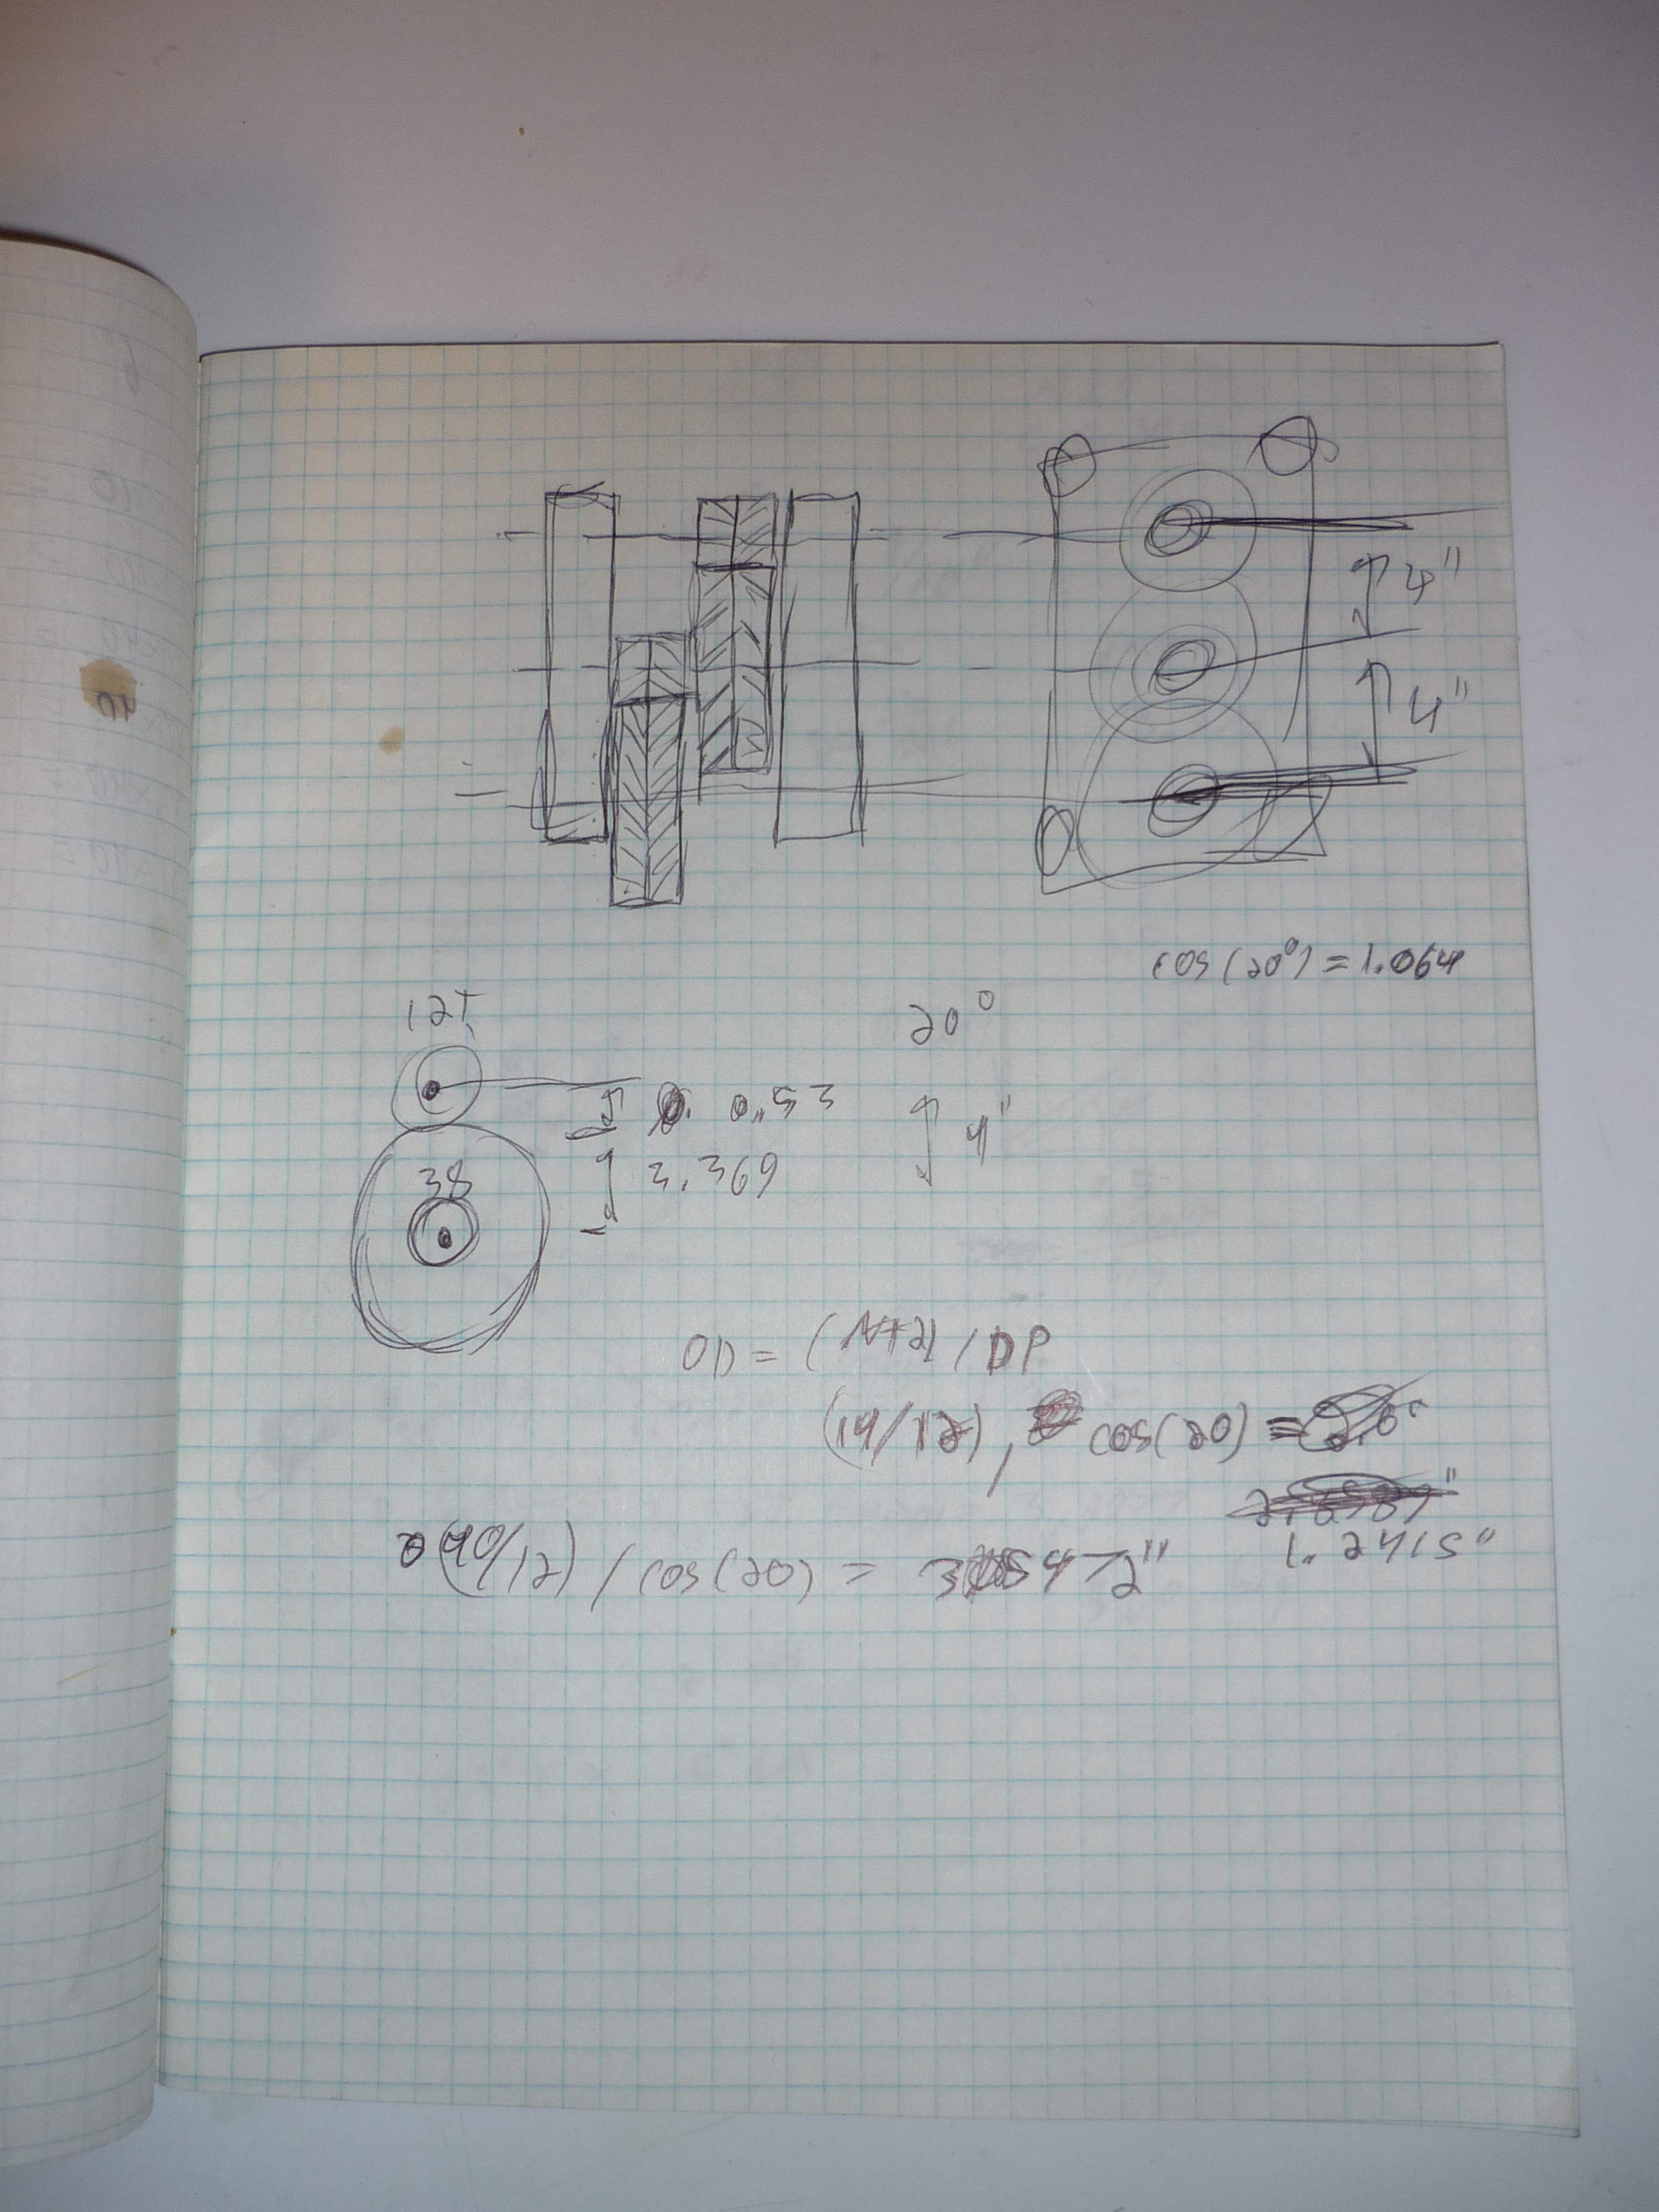 4"
4"
cos(20°) = 1.064
12T
20°
0.53
4"
3.369
38
OD = (N+2) / DP
(14/12) / cos(20) =
1.2415"
(40/12) / cos(20) =